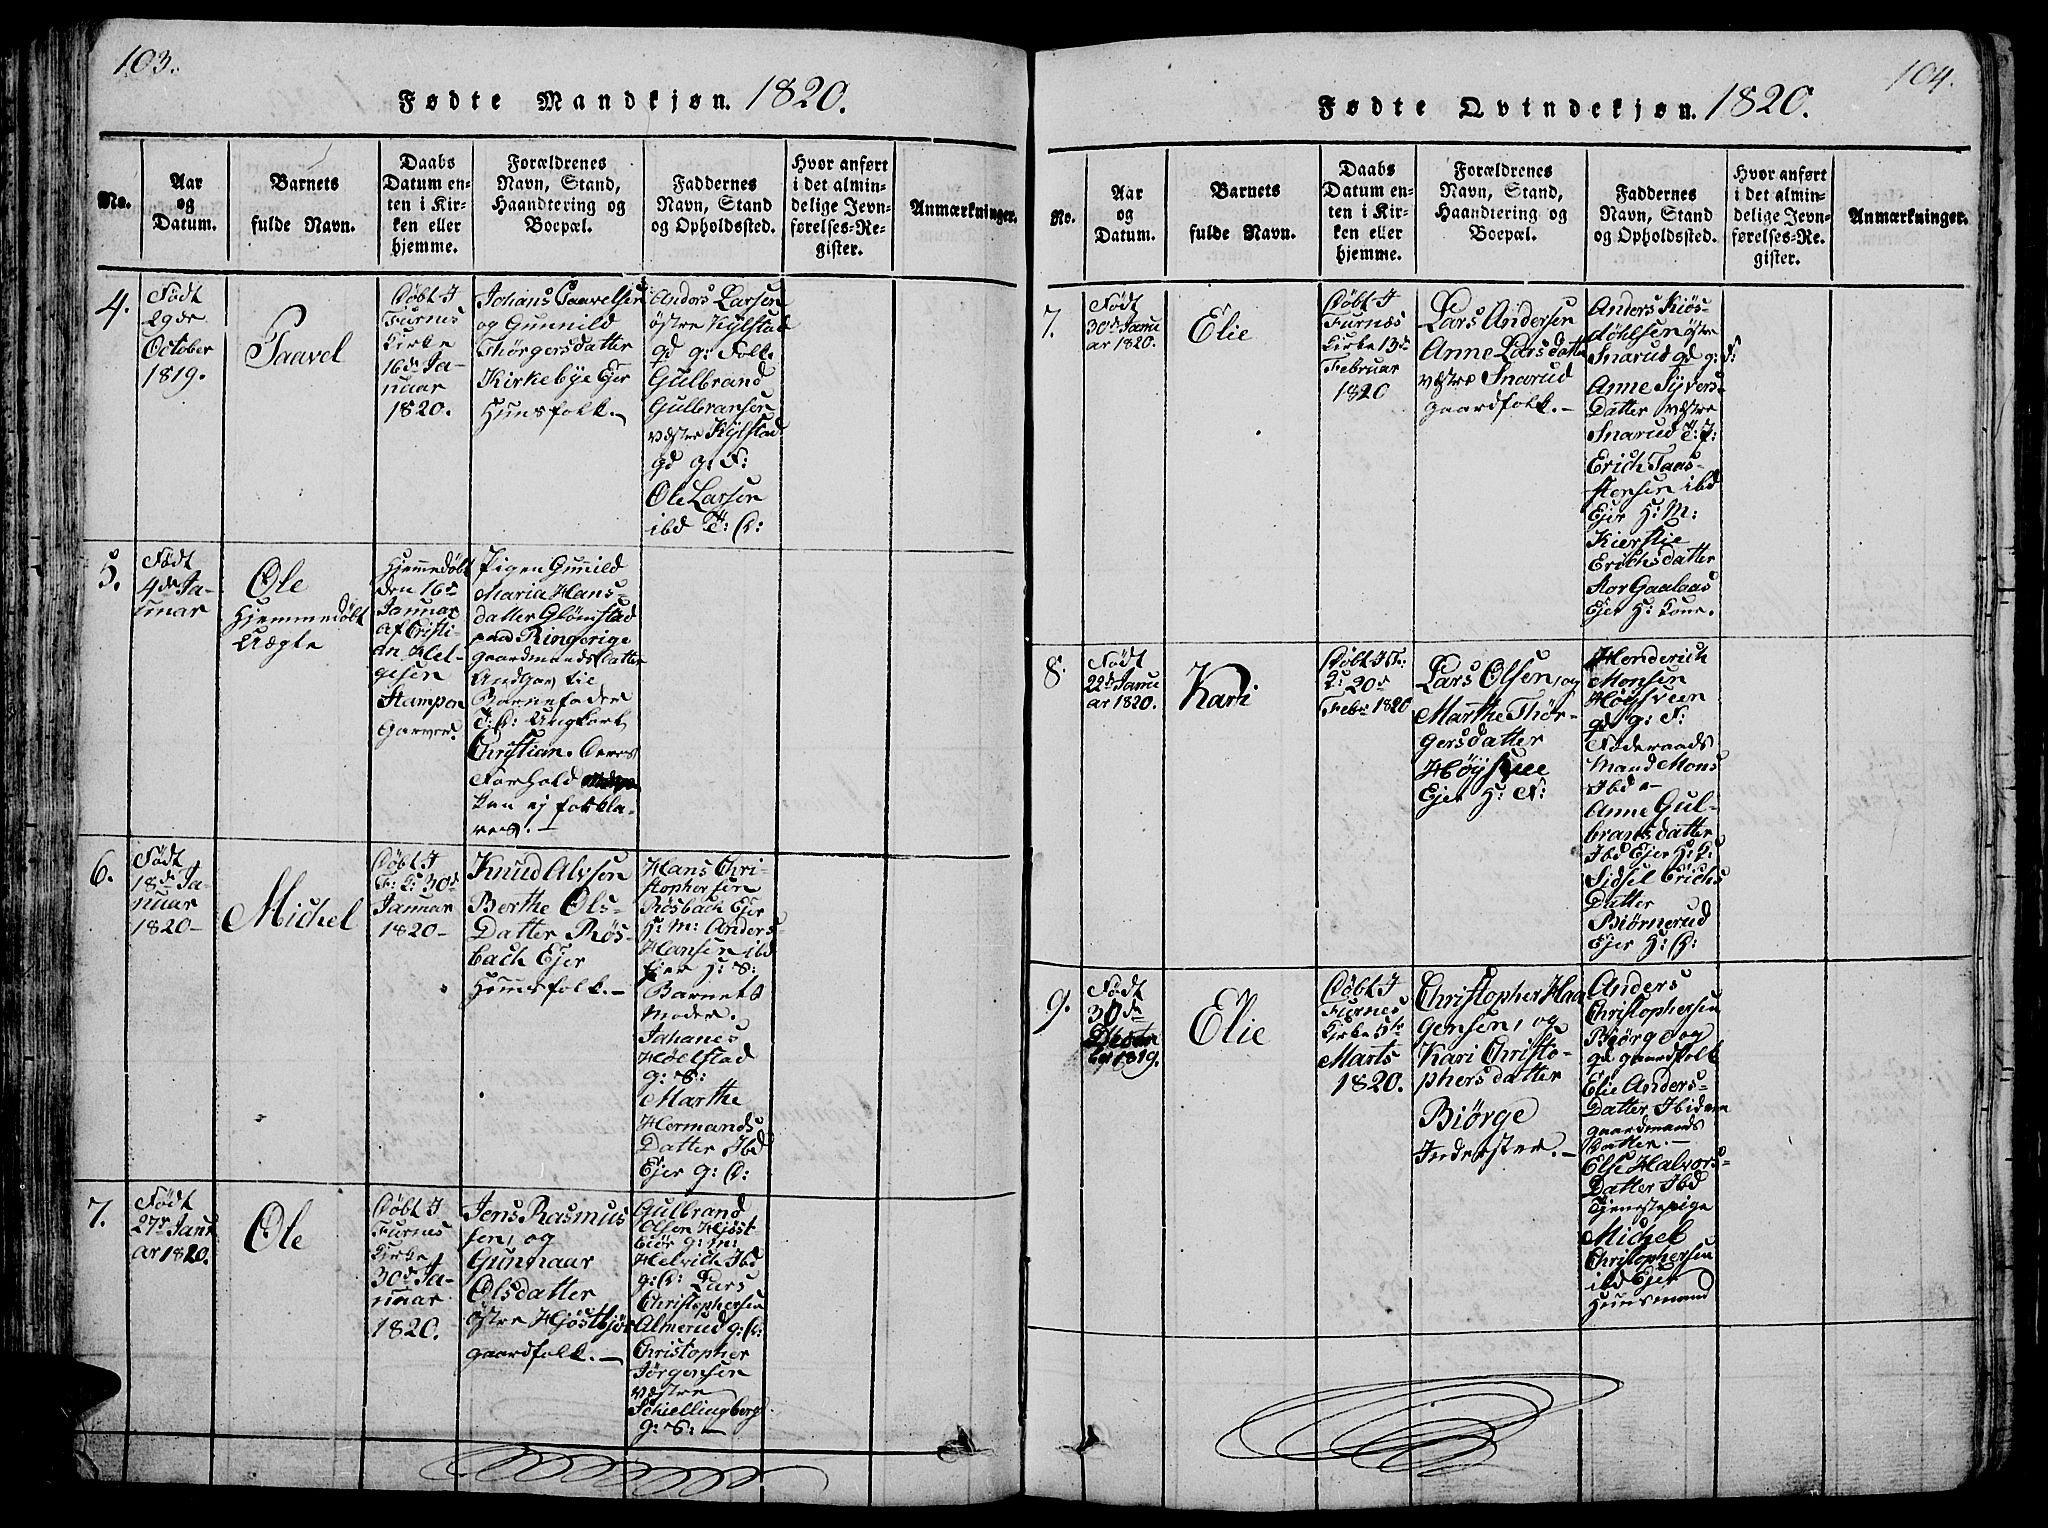 103.
Fødte Mandkjøn. 1820.
No.
Aar
og
Datum.
Barnets
fulde Navn.
Daabs
Datum en-
ten i Kir-
ken eller
hjemme.
Forældrenes
Navn, Stand,
Haandtering og
Boepæl.
Faddernes
Navn, Stand
og Opholdssted.
Hvor anført
i det almin-
delige Jevn-
førelses-Re-
gister.
Anmærkninger.
4.
Født
29de
October
1819.
Paavel
Døbt I
Furnes
Kirke
16de Ja-
nuar
1820.
Johans Paavelsen
og Gunnild
Thørgersdatter
Kirkebye Ejer
Huusfolk.-
Anders Larsen
østre Kylstad
gd g: Folk
Gulbrand
Gulbransen
væstre Kylstad
gd g: F:
Ole Larsen
ibd T: D:
5.
Født
4de Ja-
nuar
Ole
Hjemmedøbt
Uægte
Hjemedøbt
den 16de
Januar
af Cristi-
an Hel-
gesen
Stampen
Garver.
Pigen Gunild
Maria Hans-
datter Glømstad
paa Ringerige
gaardmandsdatter
Undgav til
Barnefader
Ungkarl
Christian. Deres
Forhold
kan ej forkla-
res.-
6.
Født
18de Ja-
nuar
1820-
Michel
Døbt I
F: K: 30de
Januar
1820-
Knud Alvsen
Berthe Ols-
Datter Røs-
bach Ejer
Huusfolk.-
Hans Chri-
stophersen
Røsbach Ejer
H: M: Anders
Hansen ibd
Ejer H: S:
Barnets
Moder.
Johanes
Høelstad
g: S:
Marthe
Hermands
Datter Ibd
Ejer g: D:
7.
Født
27de Janu
ar 1820.
Ole
Døbt I
Furnes
Kirke
30de Ja-
nuar
1820.
Jens Rasmus
sen, og
Gunnaar
Olsdatter
østre Hjøstbjør
gaardfolk.-
Gulbrand
Olsen Hjøst
biør g: m:
Helvich Ibd
g: D: Lars
Christophersen
Almerud g: D:
Christopher
Jørgensen
væstre
Schiellingberg
g: S:-
104.
Fødte Qvindekjøn. 1820.
No.
Aar
og
Datum.
Barnets
fulde Navn.
Daabs
Datum en-
ten i Kir-
ken eller
hjemme.
Forældrenes
Navn, Stand,
Haandtering og
Boepæl.
Faddernes
Navn, Stand
og Opholdssted.
Hvor anført
i det almin-
delige Jevn-
førelses-Re-
gister.
Anmærkninger.
7.
Født
30de Janu
ar 1820.
Elie
Døbt I
Furnæs
Kirke 13de
Februar
1820
Lars Andersen
Anne Larsdatter
væstre Snarud
gaardfolk.-
Anders Kiøs-
døhlsen østre
Snarud gd g: F:
Anne Syvers-
Datter væstre
Snarud T: J:
Erich Taas-
stensen ibd
Ejer H: M:
Kierstie
Erichsdatter
Stor Gaalaas
Ejer H: Kone.
8.
Født
22de Janu
ar 1820.
Kari
Døbt I F:
K: 20de
Febr 1820
Lars Olsen, og
Marthe Thør-
gersdatter
Høysvee
Ejer H: F:
Henderich
Monsen
Høysveen
gd g: F:
Føderaads
Mand Mons
Ibd-
Anne Gul-
bransdatter
Ibd Ejer H: K:
Sidsel Erichs
Datter
Biørnerud
Ejer H: D:
9.
Født
30de
1819.
Elie
Døbt I
Furnes
Kirke 5te
Marts
1820.
Christopher Haa
gensen, og
Kari Christo-
phersdatter
Biørge
Inderster.-
Anders
Christophersen
Biørge og
gd gaardfolk
Elie Anders-
Datter Ibidem
gaardmands
Datter.-
Else Halvors-
Datter Ibd
Tjenestepige
Michel
Christophersen
ibd Ejer
Huusmand